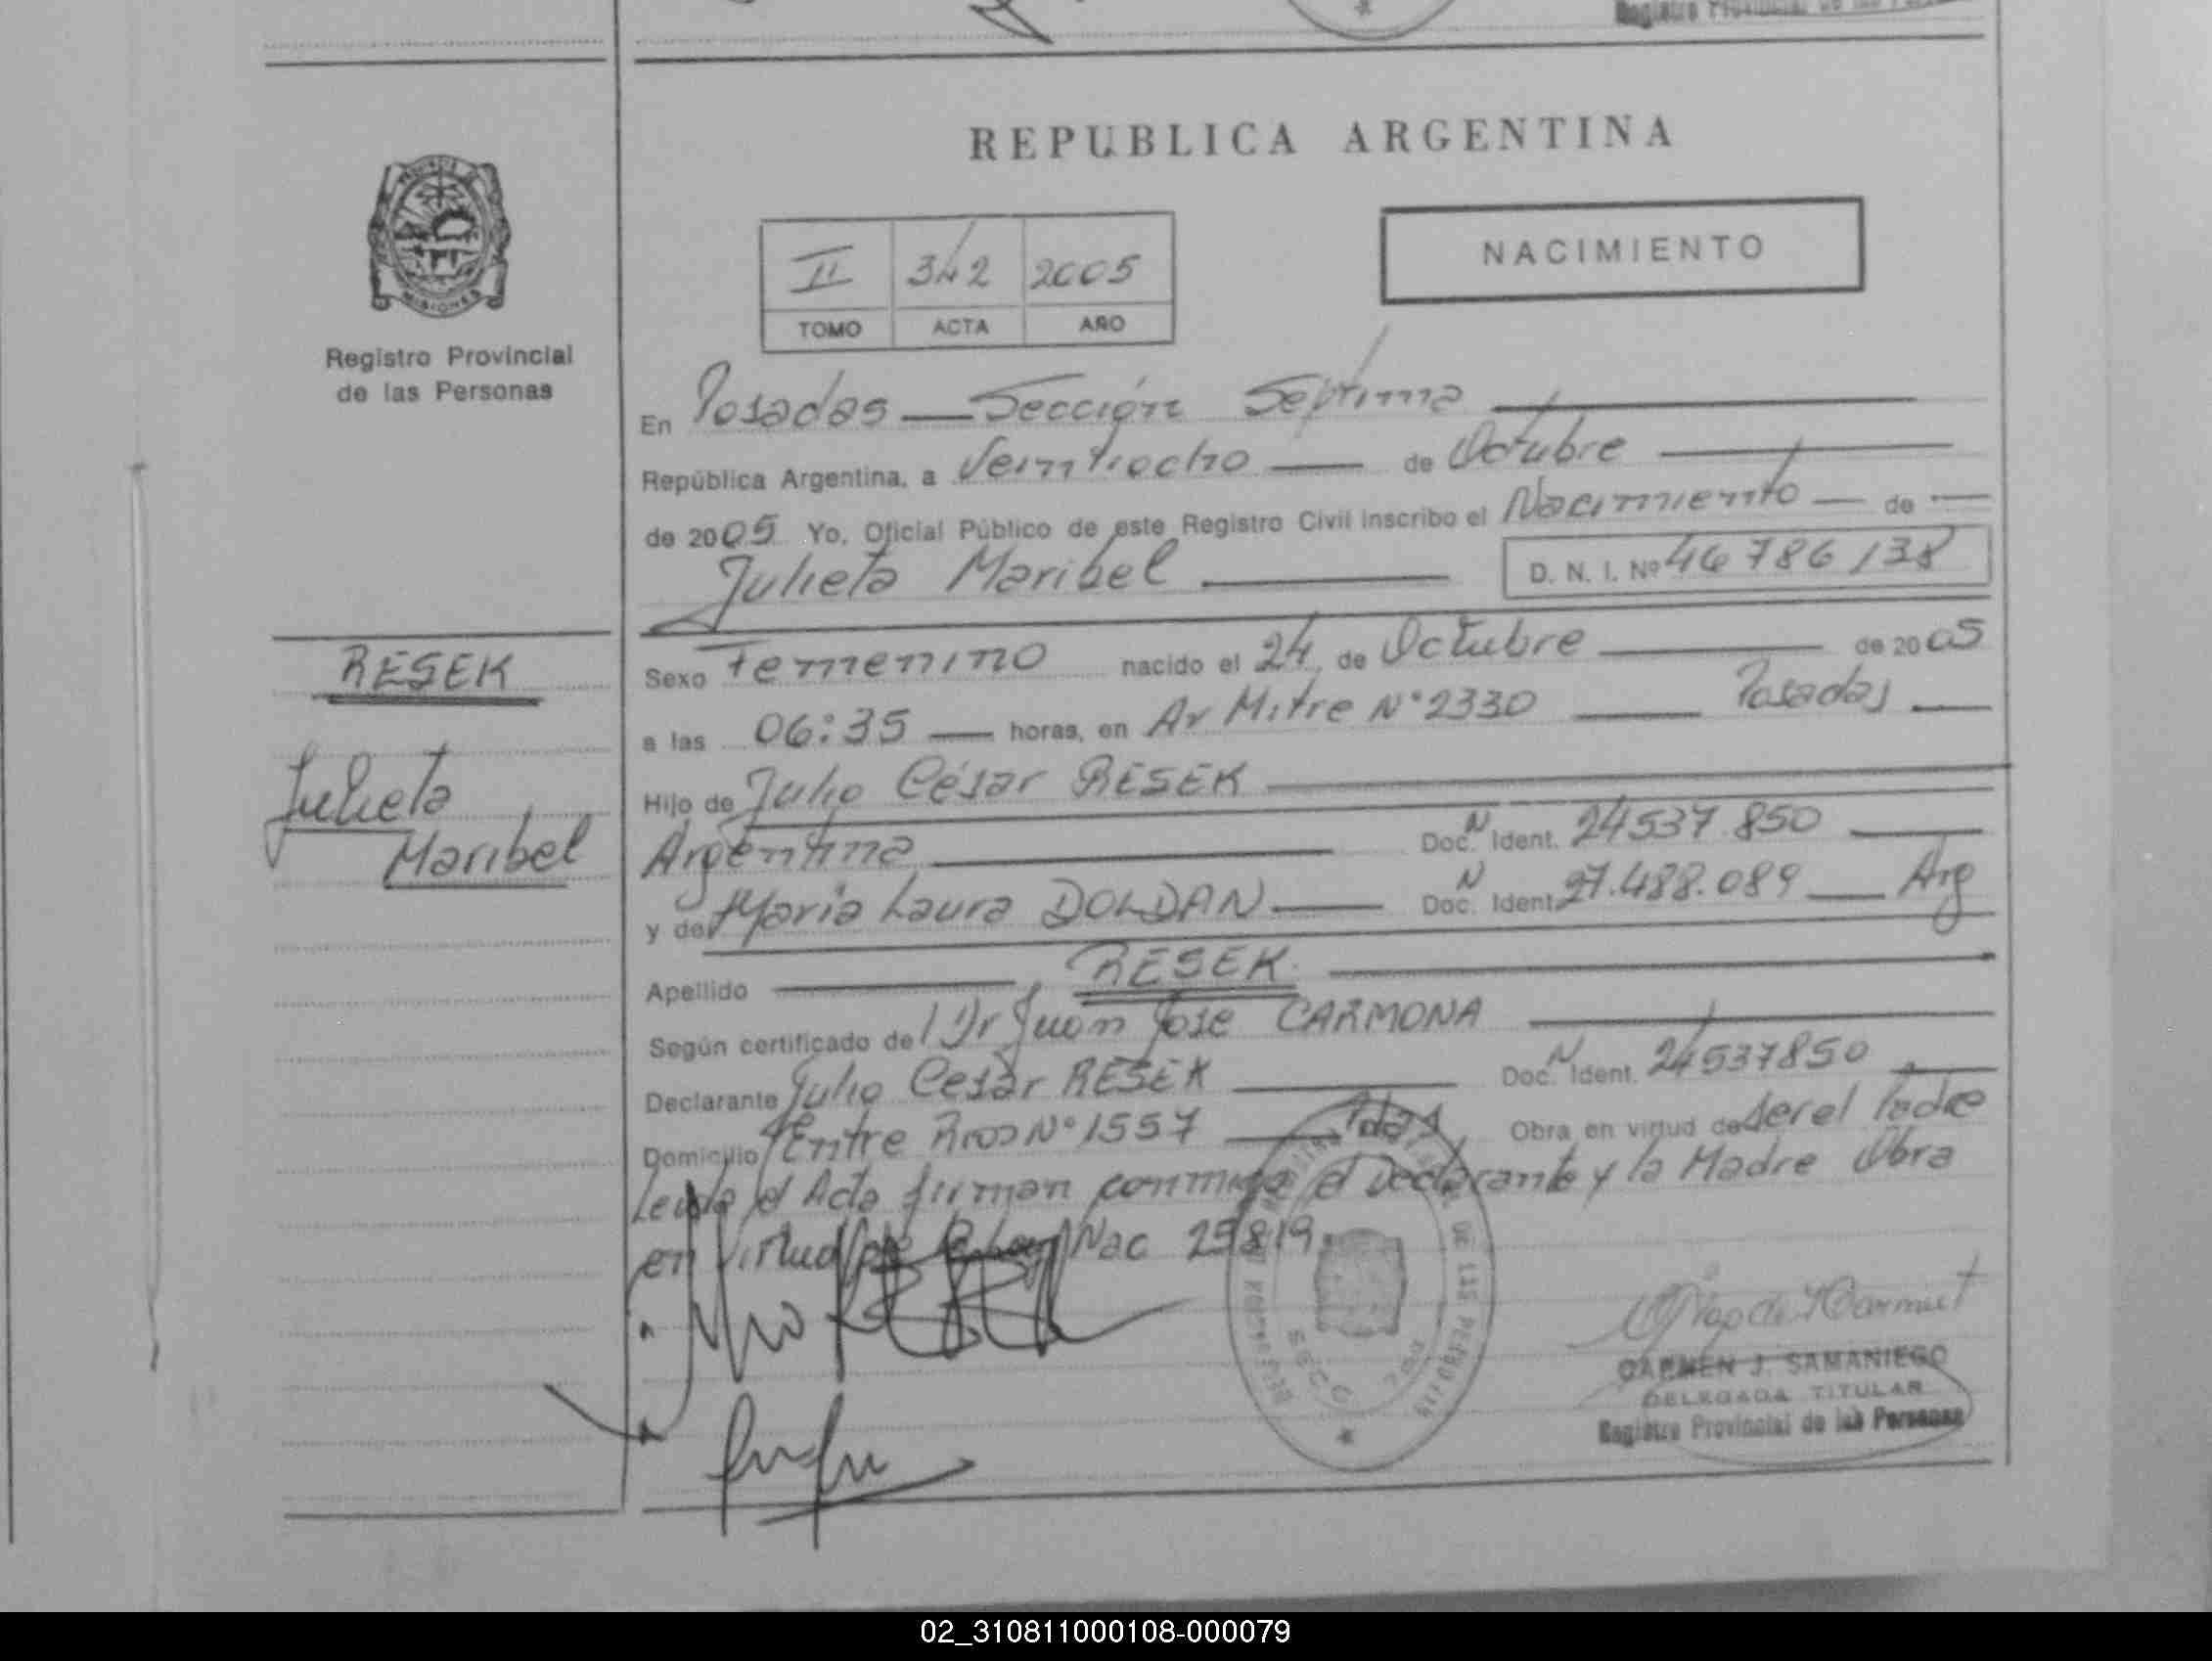 Registro Provincial de las Personas
REPUBLICA ARGENTINA
PROVINCIA DE
MISIONES
Registro Provincial
de las Personas
II 342 2005
TOMO ACTA AÑO
NACIMIENTO
En Posadas — Sección Séptima
República Argentina, a Veintiocho — de Octubre
de 2005 Yo, Oficial Público de este Registro Civil inscribo el Nacimiento — de —
Julieta Maribel — D. N. I. Nº 46 786 138
RESEK
Julieta
Maribel
Sexo Femenino nacido el 24 de Octubre — de 2005
a las 06:35 — horas, en Av Mitre N° 2330 — Posadas —
Hijo de Julio César RESEK
Argentina — Doc. N Ident. 24537 850 —
y de Maria Laura DOLDAN — Doc. N Ident. 27.488.089 — Arg
Apellido — RESEK.
Según certificado de Dr Juan Jose CARMONA
Declarante Julio Cesar RESEK — Doc. N Ident. 24537850
Domicilio Entre Rios N° 1557 — Pdas Obra en virtud de ser el Padre
Leida el Acta firman conmigo el Declarante y la Madre Obra
en virtud de la Ley Nac 25819.
CARMEN J. SAMANIEGO
DELEGADA TITULAR
Registro Provincial de las Personas
02_310811000108-000079